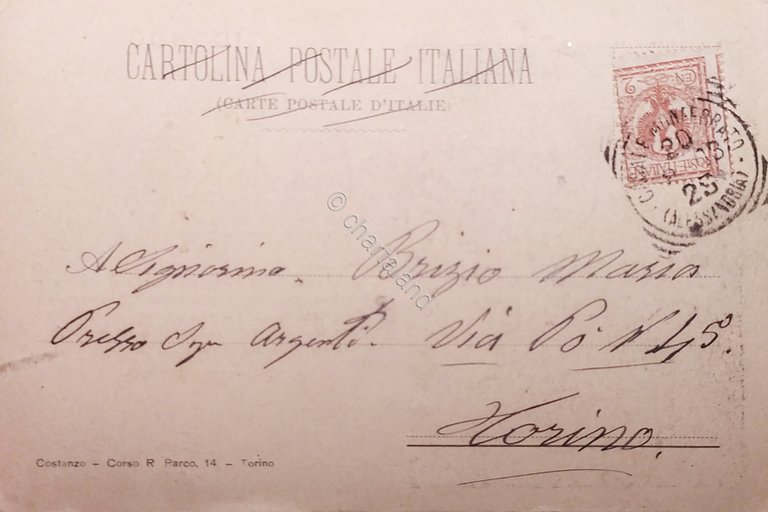 CARTOLINA POSTALE ITALIANA
(CARTE POSTALE D'ITALIE)
CEN 2
MONFERRATO
20
25
(ALESSANDRIA)
© chartaland
A Signorina. Brizio Maria
Presso Sigr Argenti. Via Po N 45°.
Torino.
Costanzo - Corso R Parco, 14 - Torino